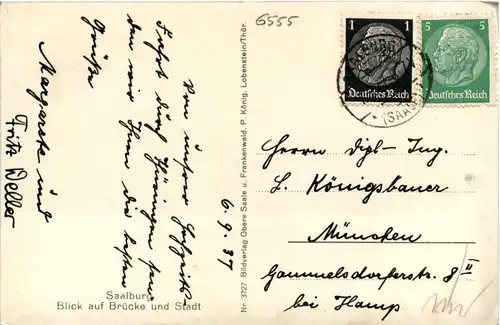 6555
1
5
Deutsches Reich
Deutsches Reich
(SAALE)
6.9.37
Von unserer Hochzeits-
Fahrt durch Thüringen sen-
den wir Ihnen die besten
Grüße
Margarete und
Fritz Weller
Nr. 3727. Bildverlag Obere Saale u. Frankenwald. P. König, Lobenstein/Thür.
Herrn Dipl-Ing.
L. Königsbauer
München
Gammelsdorferstr. 8 II
bei Hamp
Saalburg
Blick auf Brücke und Stadt